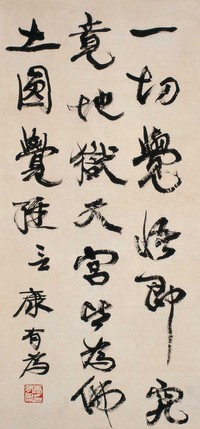 一切覺悟即究
竟地獄天宮皆為佛
土圓覺經言 康有為